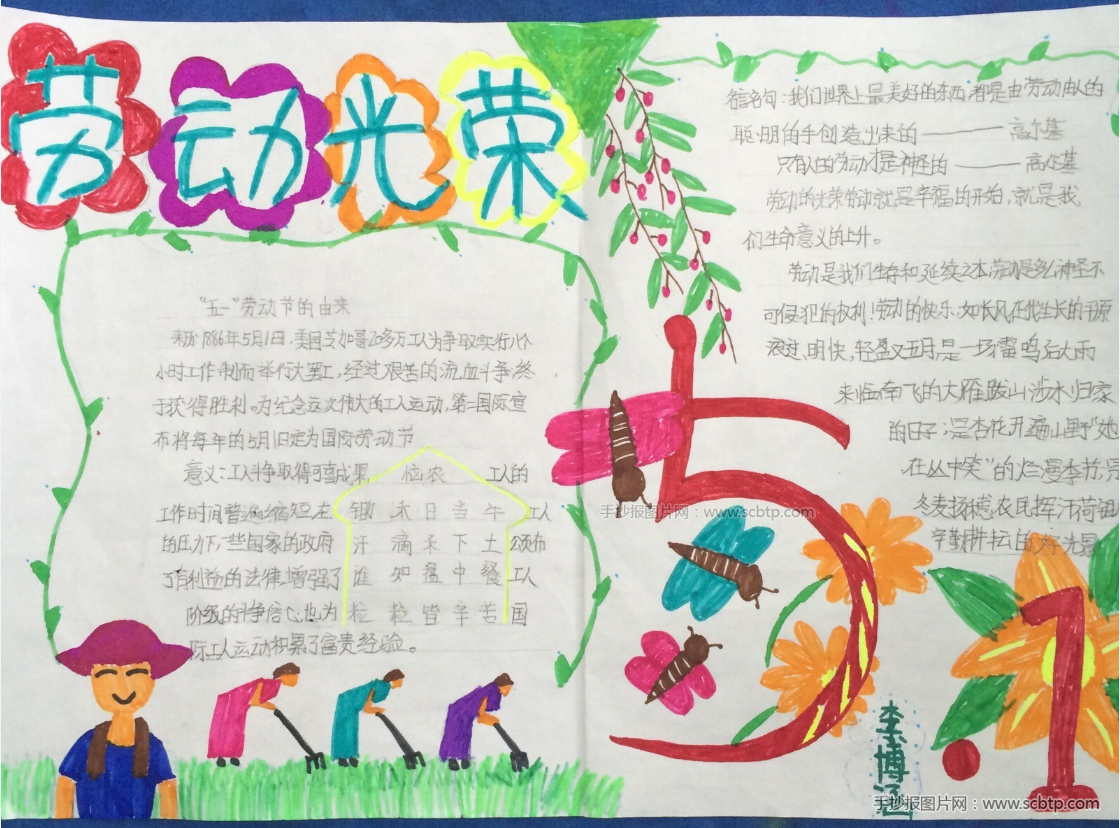 劳动光荣
"五一"劳动节的由来
1886年5月1日,美国芝加哥20多万工人为争取实行八个
小时工作制而举行大罢工,经过艰苦的流血斗争,终
于获得胜利。为纪念这次伟大的工人运动,第二国际宣
布将每年的5月1日定为国际劳动节
意义:工人争取得可喜成果 工人的
工作时间普遍缩短在 工人
的压力下,一些国家的政府 颁布
了有利益的法律增强了 工人
阶级的斗争信心,也为 国
际工人运动积累了富贵经验。
农
锄禾日当午
汗滴禾下土
谁知盘中餐
粒粒皆辛苦
名句:我们世界上最美好的东西,都是由劳动由人的
聪明的手创造出来的———高尔基
只有人的劳动才是神圣的———高尔基
劳动的光荣劳动就是幸福的开始,就是我
们生命意义的上升。
劳动是我们生存和延续之本劳动是多么神圣不
可侵犯的权利!劳动的快乐,如长风在我生长的平原
滚过,明快,轻盈又五月,是一场雷鸣后大雨
来临南飞的大雁跋山涉水归家
的日子;是杏花开遍山野"她
在丛中笑"的烂漫季节,
冬麦扬穗农民挥汗荷锄
辛勤耕耘的好光景
5.1
李博涵
手抄报图片网:www.scbtp.com
手抄报图片网:www.scbtp.com